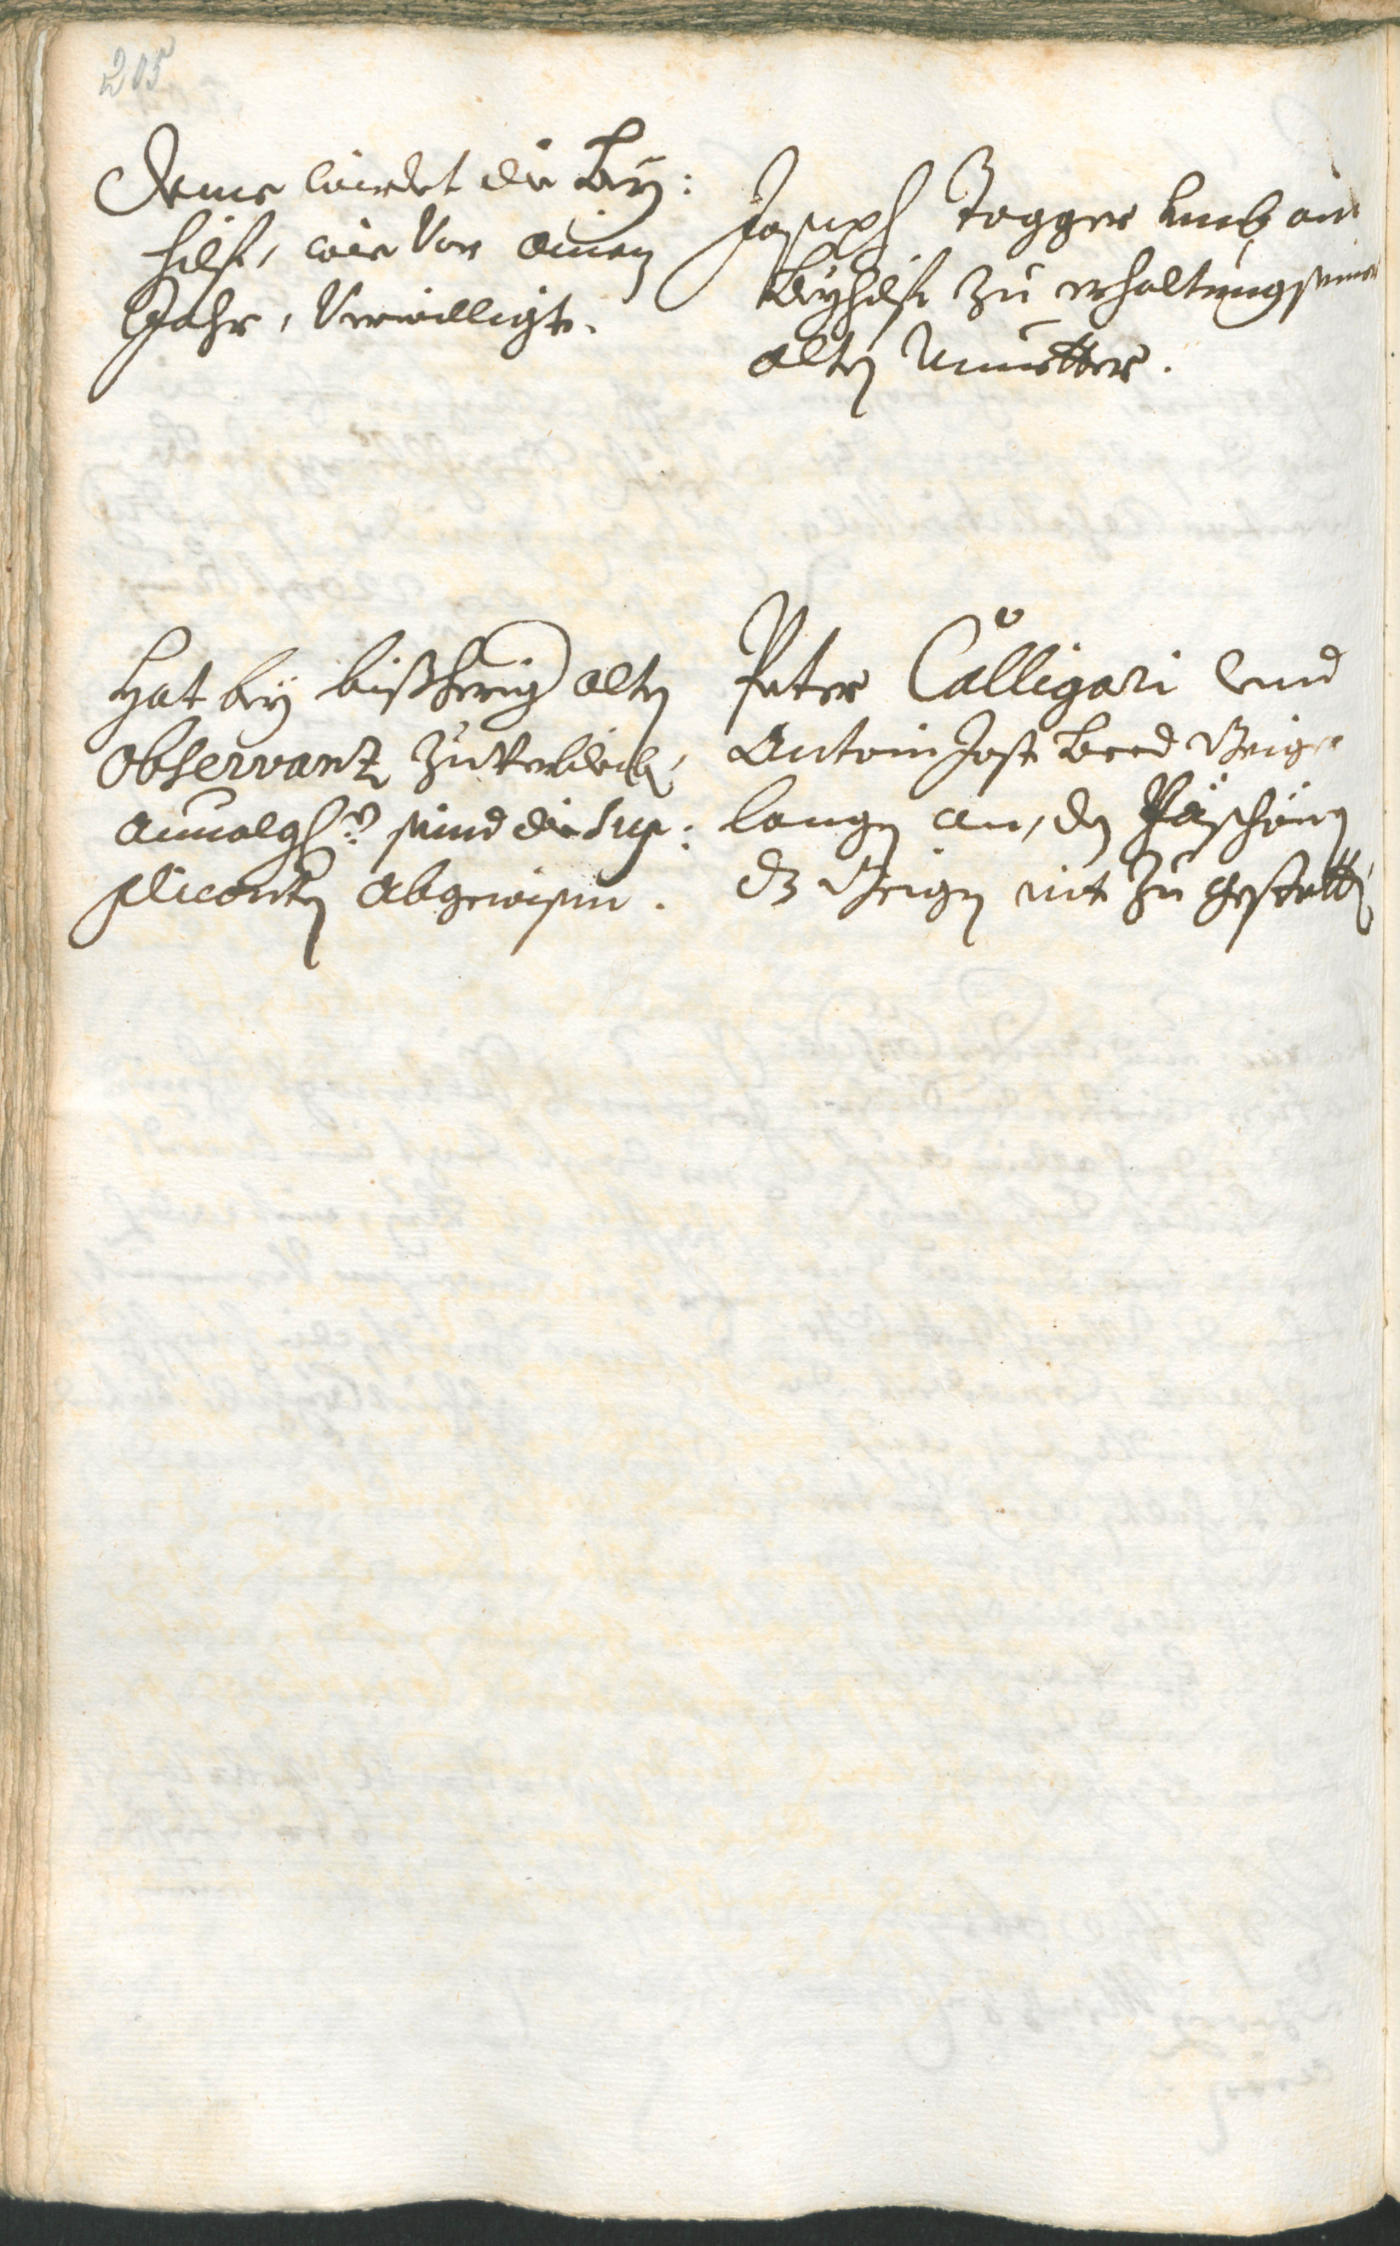 205
Deme wirdet die Bey:
hilf, wie Vor ainem
Jahr, Verwilligt.
Joseph Jogger umb ein
Beyhilf zu erhaltung seiner
alten Muetter.
Hat bey bißherig alten
Observantz zuverbleiben,
seind die Sup:
plicanten abgewisen.
Peter Calligari und
Antoni Jost beed Geiger
langen an, den
dz Geigen nit zu gestatten